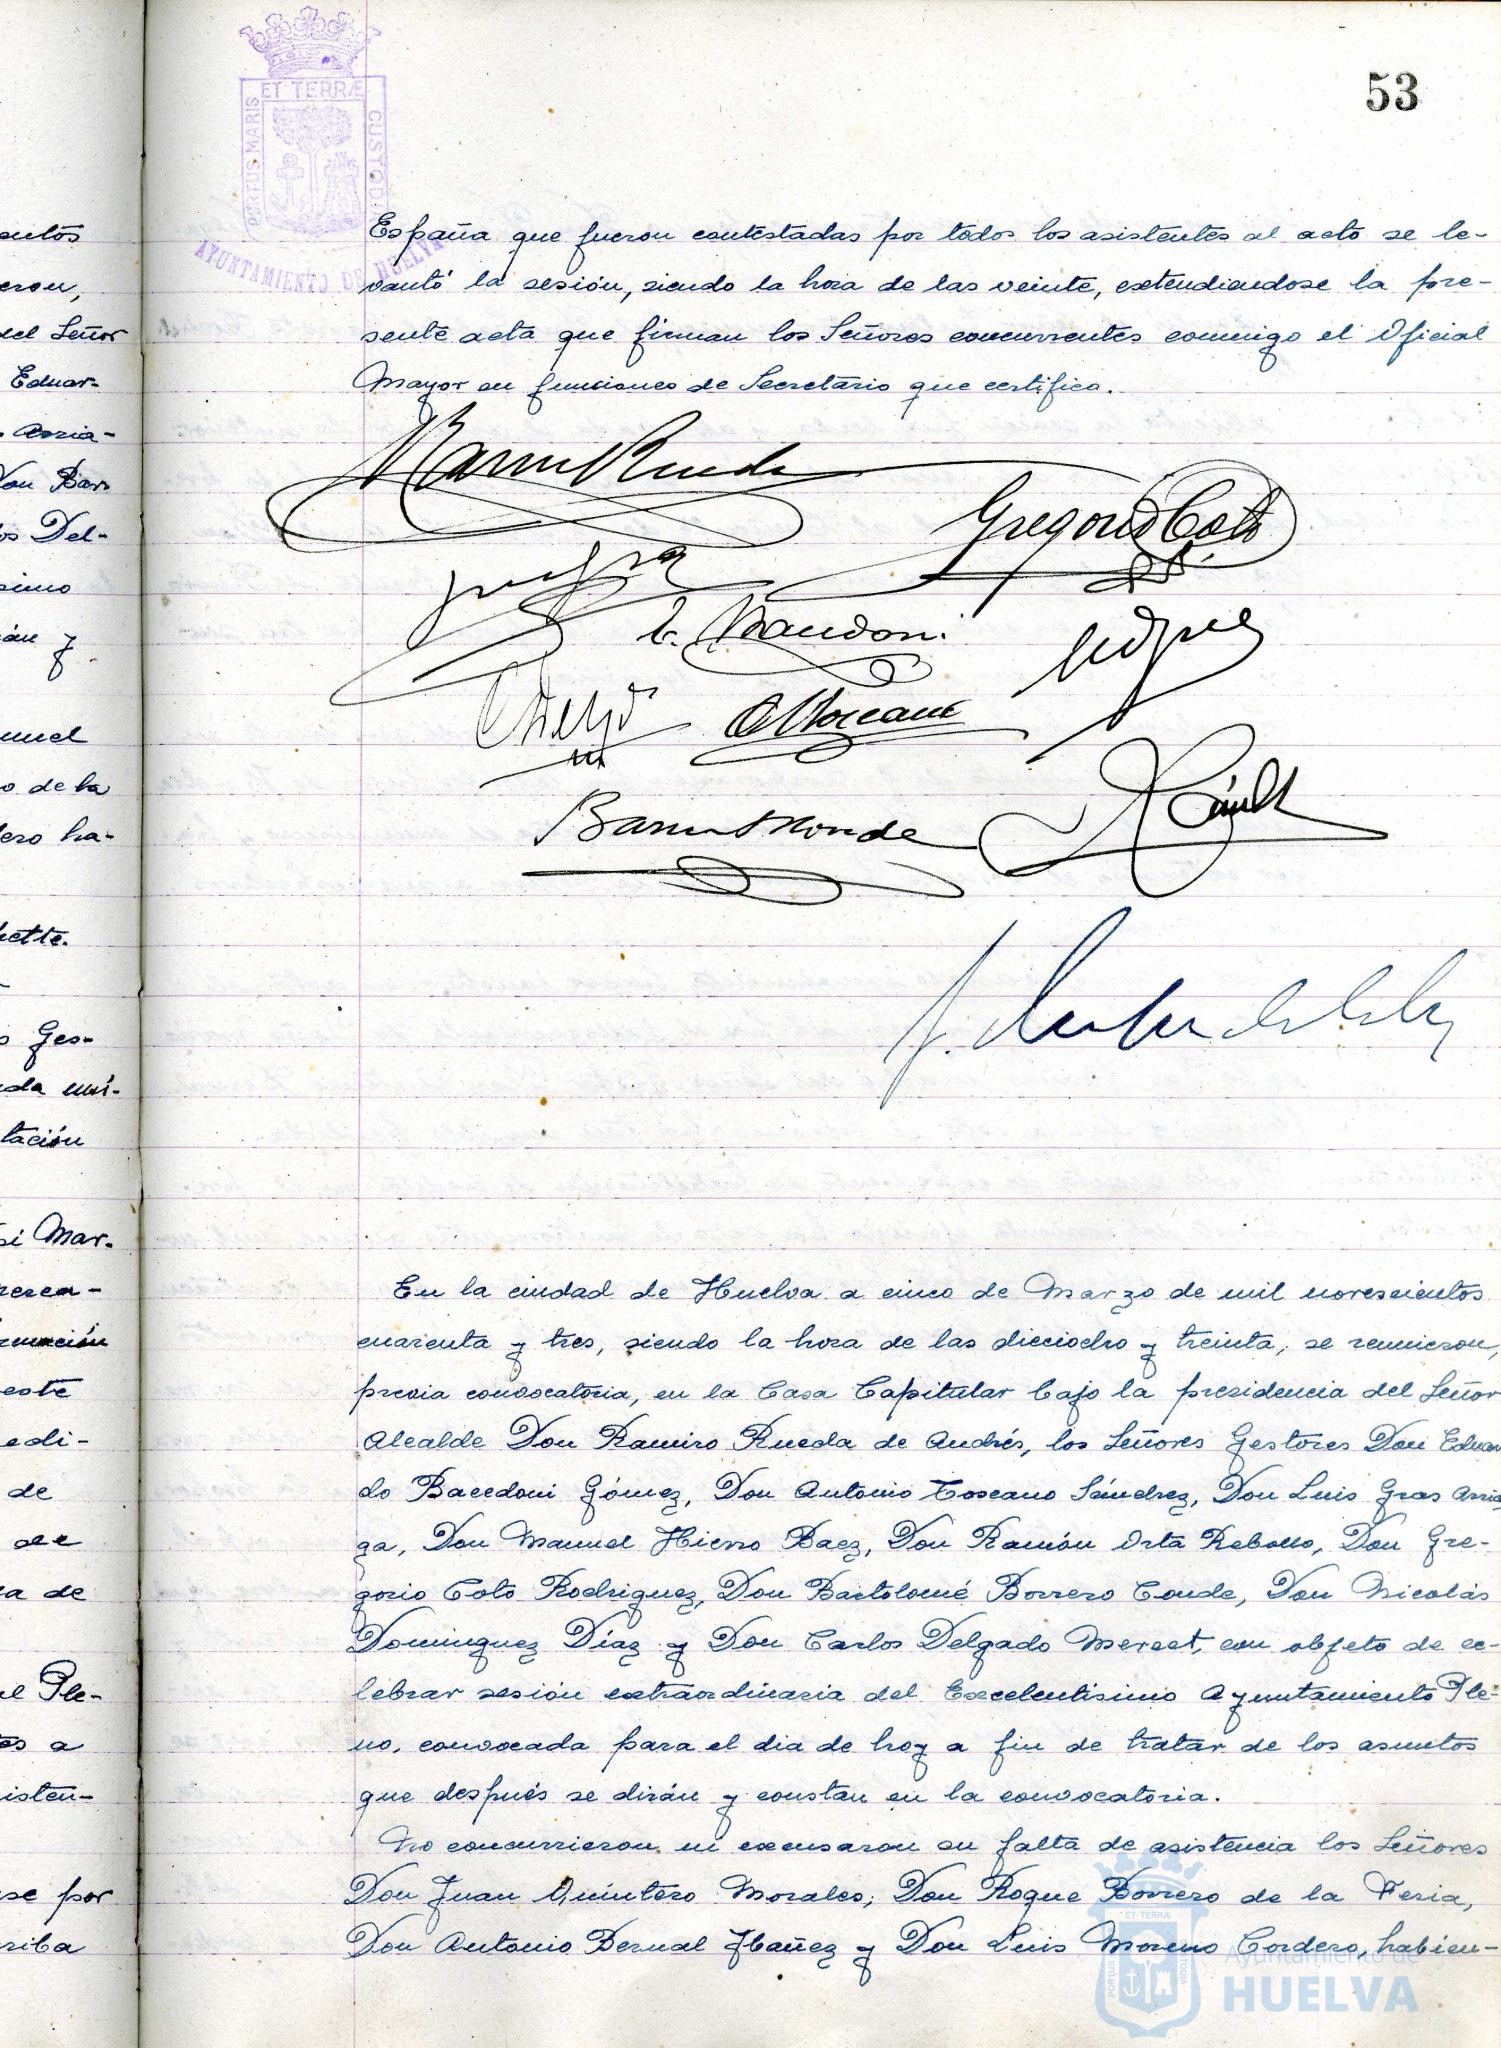 autos
eron,
del Señor
Eduar-
Arria-
Don Bar-
os Del-
simo
án y
anuel
o de la
dero ha-
hette.
s Ges-
ada uni-
tación
si Mar-
este
edi-
de
de
a de
el Ple-
tos a
isten-
se por
riba
53
PORTUS MARIS ET TERRÆ CUSTOD
AYUNTAMIENTO DE HUELVA
España que fueron contestadas por todos los asistentes al acto se le-
vantó la sesión, siendo la hora de las veinte, extendiendose la pre-
sente acta que firman los Señores concurrentes conmigo el Oficial
Mayor en funciones de Secretario que certifica.
Ramiro Rueda
Gregorio Coto
A Toscano
En la ciudad de Huelva a cinco de Marzo de mil novescientos
cuarenta y tres, siendo la hora de las dieciocho y treinta, se reunieron,
previa convocatoria, en la Casa Capitular bajo la presidencia del Señor
Alcalde Don Ramiro Rueda de Andrés, los Señores Gestores Don Eduar
do Bacedoni Gómez, Don Antonio Toscano Sánchez, Don Luis Gras Arria
ga, Don Manuel Hierro Baez, Don Ramón Orta Rebollo, Don Gre-
gorio Coto Rodriguez, Don Bartolomé Borrero Conde, Don Nicolás
Dominguez Díaz y Don Carlos Delgado Mercet, con objeto de ce-
lebrar sesión extraordinaria del Excelentisimo Ayuntamiento Ple-
no, convocada para el dia de hoy a fin de tratar de los asuntos
que después se dirán y constan en la convocatoria.
No concurrieron ni excusaron su falta de asistencia los Señores
Don Juan Quintero Morales, Don Roque Borrero de la Feria,
Don Antonio Bernal Ibañez y Don Luis Moreno Cordero, habien-
PORTUS MARIS ET TERRÆ CUSTODIA
Ayuntamiento de
HUELVA